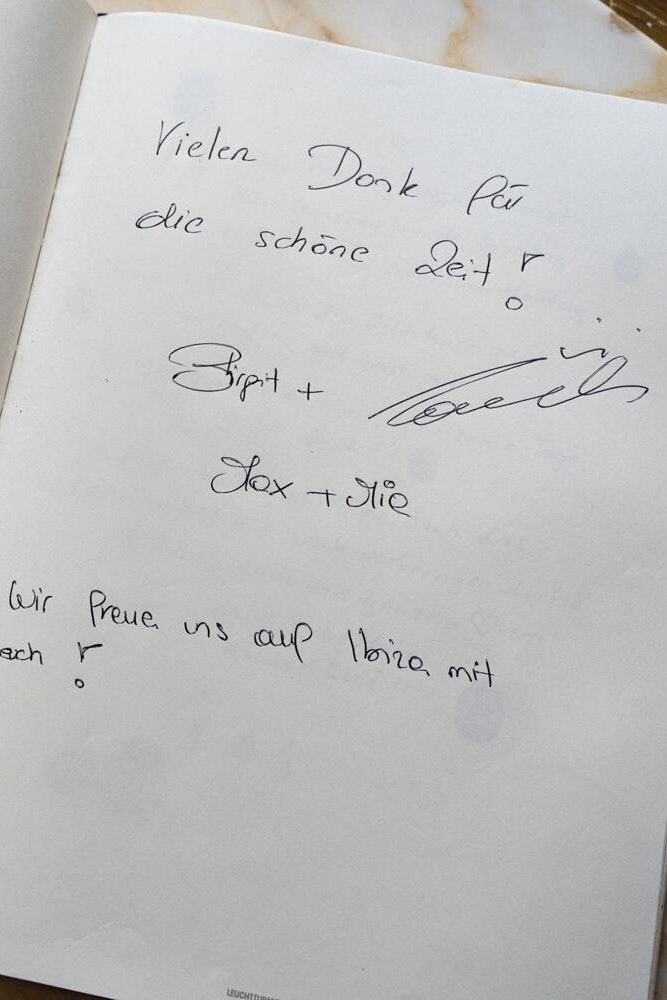 Vielen Dank für
die schöne Zeit!
Birgit +
Max + Mie
Wir freuen uns auf Ibiza mit
euch!